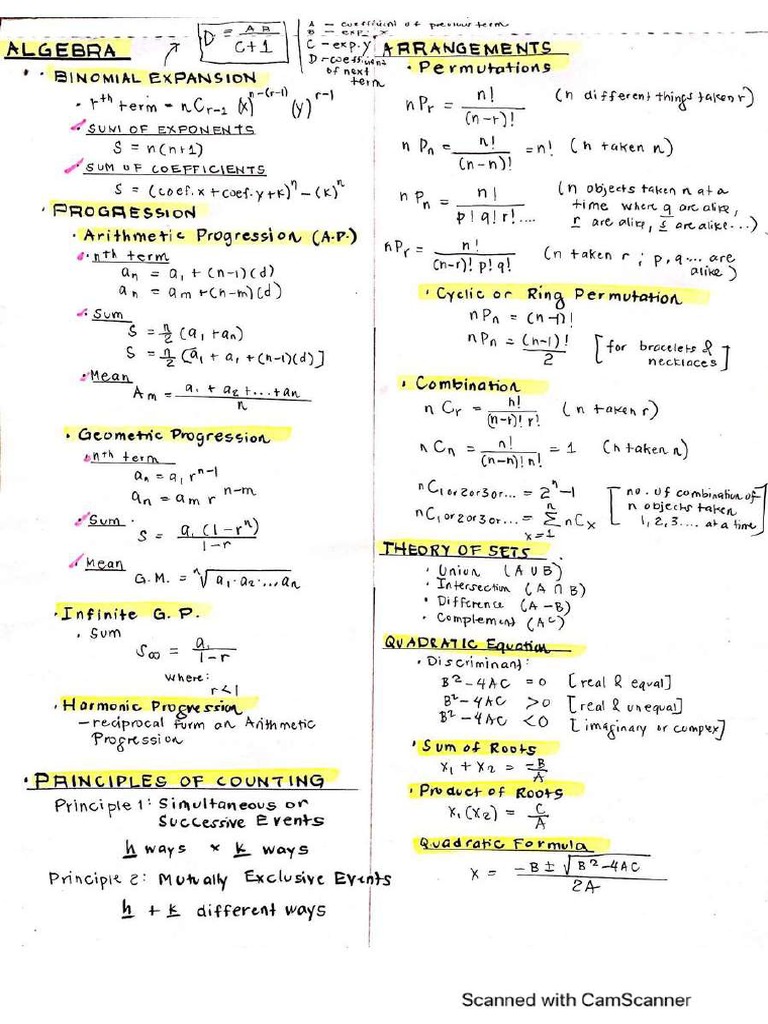 ALGEBRA
D = AB / C+1
A – coefficient of previous term
B – exp. x
C – exp. y
D – coefficient of next term
• BINOMIAL EXPANSION
• rth term = nCr-1 (x)^n-(r-1) (y)^r-1
SUM OF EXPONENTS
S = n(n+1)
SUM OF COEFFICIENTS
S = (coef.x + coef.y + k)^n − (k)^n
• PROGRESSION
• Arithmetic Progression (A.P.)
nth term
an = a1 + (n-1)(d)
an = am + (n-m)(d)
Sum
S = n/2 (a1 + an)
S = n/2 [a1 + a1 + (n-1)(d)]
Mean
Am = a1 + a2 + ... + an / n
• Geometric Progression
nth term
an = a1 r^n-1
an = am r^n-m
Sum
S = a1 (1-r^n) / 1-r
Mean
G.M. = ^n√a1·a2·...an
• Infinite G.P.
• Sum
S∞ = a1 / 1-r
where:
r<1
• Harmonic Progression
– reciprocal form an Arithmetic
Progression
• PRINCIPLES OF COUNTING
Principle 1: Simultaneous or
Successive Events
h ways × k ways
Principle 2: Mutually Exclusive Events
h + k different ways
ARRANGEMENTS
• Permutations
nPr = n! / (n-r)! (n different things taken r)
nPn = n! / (n-n)! = n! (n taken n)
nPn = n! / p!q!r!.... (n objects taken n at a
time where q are alike,
r are alike, s are alike...)
nPr = n! / (n-r)! p! q! (n taken r ; p, q ... are
alike)
• Cyclic or Ring Permutation
nPn = (n-1)!
nPn = (n-1)! / 2 [for bracelets &
necklaces]
• Combination
nCr = n! / (n-r)! r! (n taken r)
nCn = n! / (n-n)! n! = 1 (n taken n)
nC1 or 2 or 3 or... = 2^n - 1 [no. of combination of
nC1 or 2 or 3 or... = n Σ x=1 nCx n objects taken
1, 2, 3.... at a time]
THEORY OF SETS
• Union (A ∪ B)
• Intersection (A ∩ B)
• Difference (A – B)
• Complement (A^c)
QUADRATIC Equation
• Discriminant:
B²-4AC = 0 [real & equal]
B²-4AC > 0 [real & unequal]
B²-4AC < 0 [imaginary or complex]
• Sum of Roots
x1 + x2 = -B / A
• Product of Roots
x1(x2) = C / A
Quadratic Formula
x = -B ± √B²-4AC / 2A
Scanned with CamScanner